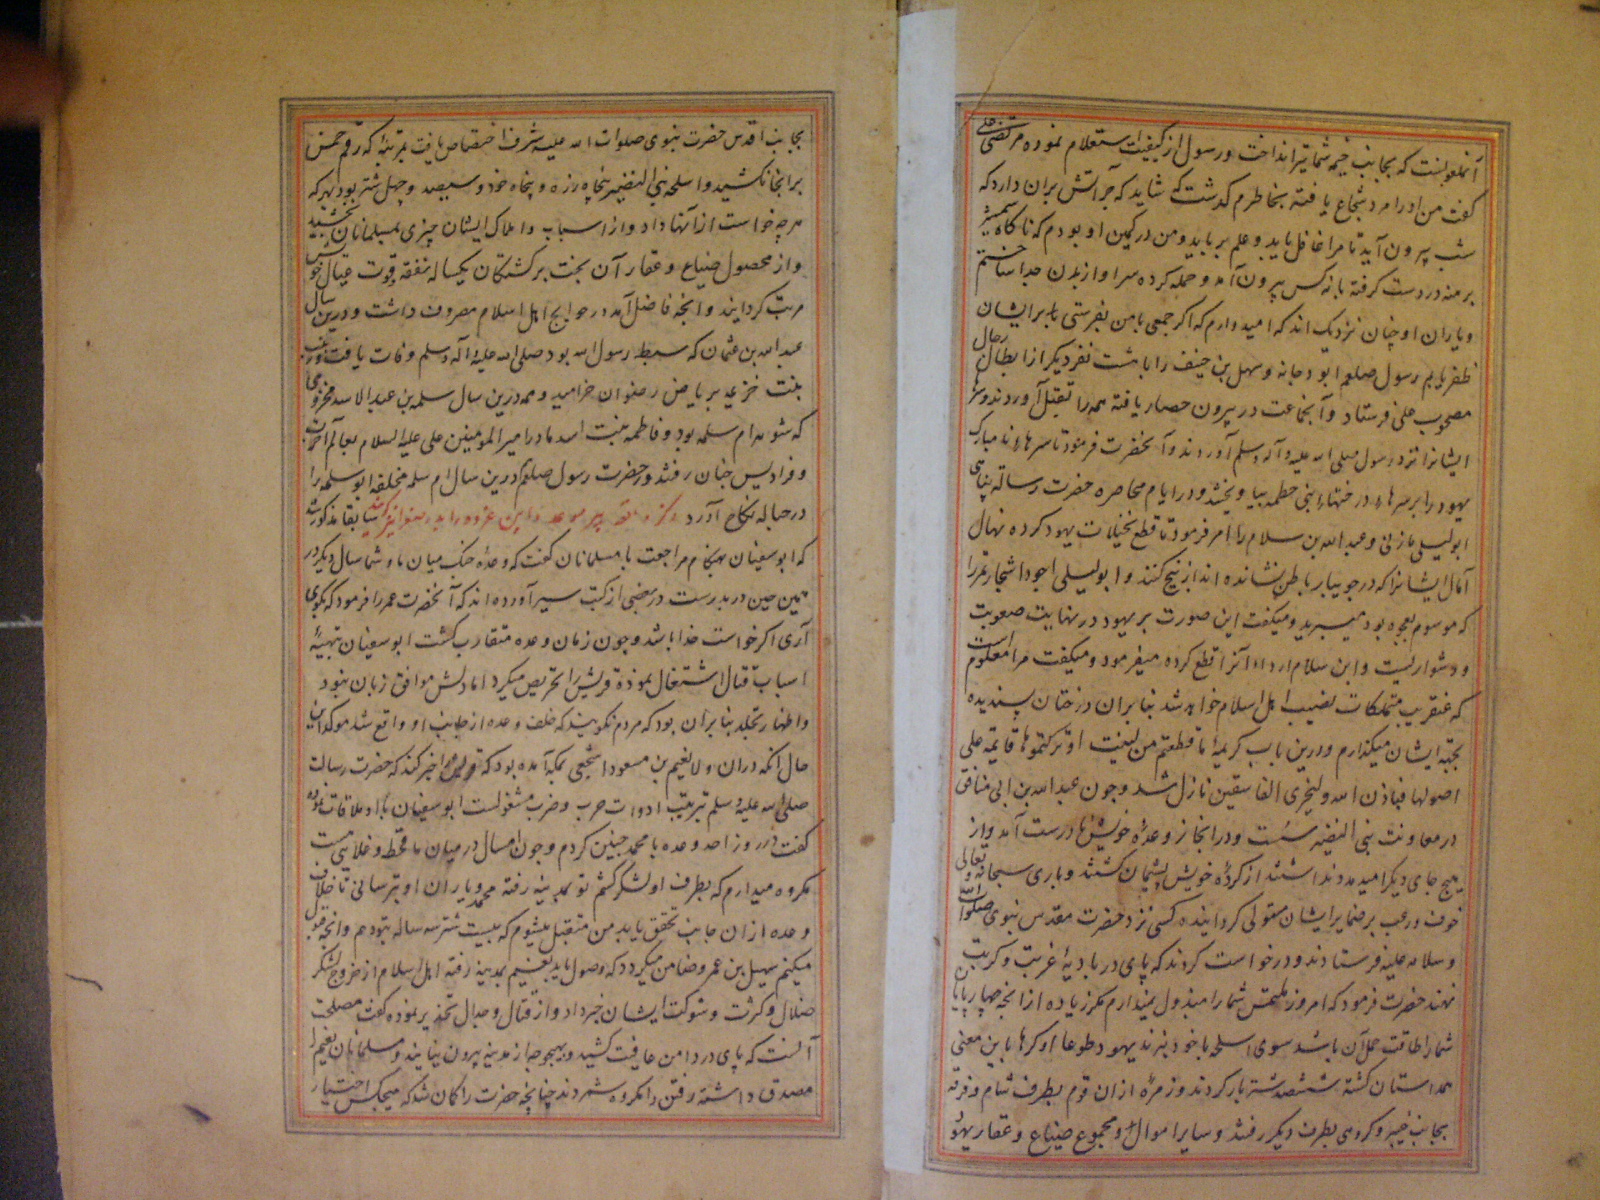 آنملعونست که بجانب خیمه شما تیر انداخت و رسول از کیفیت استعلام نموده مرتضی علی
گفت من او را مرد شجاع یافته بخاطرم گذشت که شاید که جراتش بران دارد که
شب بیرون آید تا مرا غافل یابد و علم برباید و من در کمین او بودم که ناگاه شمشیر
برهنه در دست گرفته با نه کس بیرون آمد و حمله کرده سر او از بدن جدا ساختم
و یاران او چنان نزدیک اند که امیدوارم که اگر جمعی با من بفرستی بر ایشان
ظفر یابم رسول صلعم ابو دجانه و سهل بن حنیف را با هشت نفر دیگر از ابطال رجال
مصحوب علی فرستاد و آنجماعت در بیرون حصار یافته همه را بقتل آوردند و سر
ایشانرا نزد رسول صلی الله علیه و آله و سلم آوردند و آنحضرت فرمود تا سرهای
یهود را بر سر چاه بنی حطمه بیاویختند و در ایام محاصره حضرت رسالت پناهی
ابولیلی مازنی و عبدالله بن سلام را امر فرمود تا قطع نخیلات یهود کرده نهال
آمال ایشانرا که در جویبار باطن نشانده اند از بیخ کنند و ابولیلی اجود اشجار تمر را
که موسوم بعجوه بود میبرید و میگفت این صورت بر یهود در نهایت صعوبت
و دشواریست و ابن سلام اردا آنرا قطع کرده میفرمود و میگفت مرا معلوم است
که عنقریب متملکات نصیب اهل اسلام خواهد شد بنابران درختان پسندیده
بجهة ایشان میگذارم و درین باب کریمه ما قطعتم من لینة او ترکتموها قائمة علی
اصولها فباذن الله و لیخزی الفاسقین نازل شد و چون عبدالله بن ابی منافق
در معاونت بنی النضیر سست و در انجاز وعده خویش نا درست آمد و از
هیچ جای دیگر امید مدد نداشتند از کرده خویش پشیمان گشتند و باری سبحانه و تعالی
خوف و رعب بر ضمایر ایشان مستولی گردانیده کسی نزد حضرت مقدس نبوی صلوات الله
و سلامه علیه فرستادند و درخواست کردند که پای در بادیه غربت و کربت
نهند حضرت فرمود که امروز ملتمس شما را مبذول نمیدارم مگر زیاده از انچه چهارپایان
شما را طاقت حمل آن باشد سوی اسلحه با خود نبرند یهود طوعا او کرها باین معنی
همداستان گشته ششصد شتر بار کردند و زمره از ان قوم بطرف شام و فرقه
بجانب خیبر و گروهی بطرف دیگر رفتند و سایر اموال و مجموع ضیاع و عقار یهود
بجانب اقدس حضرت نبوی صلوات الله علیه شرف اختصاص یافت بمرتبه که رقم خمس
بر انجا نکشید و اسلحه بنی النضیر پنجاه زره و پنجاه خود و سیصد و چهل شتر بود بهر که
هر چه خواست از آنها داد و از اسباب و املاک ایشان چیزی بمسلمانان بخشید
و از محصول ضیاع و عقار آن بخت برگشتگان یکساله نفقه و قوت عیال خویش
مرتب گردانید و انچه فاضل آمد در حوایج اهل اسلام مصروف داشت و درین سال
عبدالله بن عثمان که سبط رسول الله بود صلی الله علیه و آله و سلم وفات یافت و زینب
بنت خزیمه بریاض رضوان خرامید و همدرین سال سلمه بن عبدالاسد مخزومی
که شوهر ام سلمه بود و فاطمه بنت اسد مادر امیر المومنین علی علیه السلام بعالم آخرت
و فرادیس جنان رفتند و حضرت رسول صلعم درین سال ام سلمه مخلفه ابو سلمه را
در حباله نکاح آورد ذکر واقعه بدر موعد و این غزوه را بدر صغرا نیز گویند سابقا مذکور شد
که ابوسفیان بهنگام مراجعت با مسلمانان گفت که وعده جنگ میان ما و شما سال دیگر در
همین حین در بدرست در بعضی از کتب سیر آورده اند که آنحضرت عمر را فرمود که بگوی
آری اگر خواست خدا باشد و چون زمان وعده متقارب گشت ابوسفیان بتهیه
اسباب قتال اشتغال نموده قریش را تحریص میکرد اما دلش موافق زبان نبود
و اظهار تجلد بنابران بود که مردم نگویند که خلف وعده از جانب او واقع شد موکد این
حال آنکه دران ولا نعیم بن مسعود اشجعی بمکه آمده بود که قریش را خبر کند که حضرت رسالت
صلی الله علیه و سلم بترتیب ادوات حرب و ضرب مشغولست ابوسفیان با او ملاقات نموده
گفت در روز احد وعده با محمد چنین کردم و چون امسال در میان ما قحط و غلائیست
مکروه میدارم که بطرف او لشکر کشم تو بمدینه رفته محمد و یاران او بترسانی تا خلاف
وعده از ان جانب تحقق یابد من متقبل میشوم که بیست شتر سه ساله بتو دهم و انچه قبول
میکنم سهیل بن عمرو ضامن میگردد که وصول یابد نعیم بمدینه رفته اهل اسلام از خروج لشکر
ضلال و کثرت و شوکت ایشان خبر داد و از قتال و جدال تحذیر نموده گفت مصلحت
آنست که پای در دامن عافیت کشید و بهیچ وجه از مدینه بیرون نیایند و مسلمانان نعیم را
مصدق داشته رفتن را مکروه شمردند چنانچه حضرت را گمان شد که هیچکس اختیار